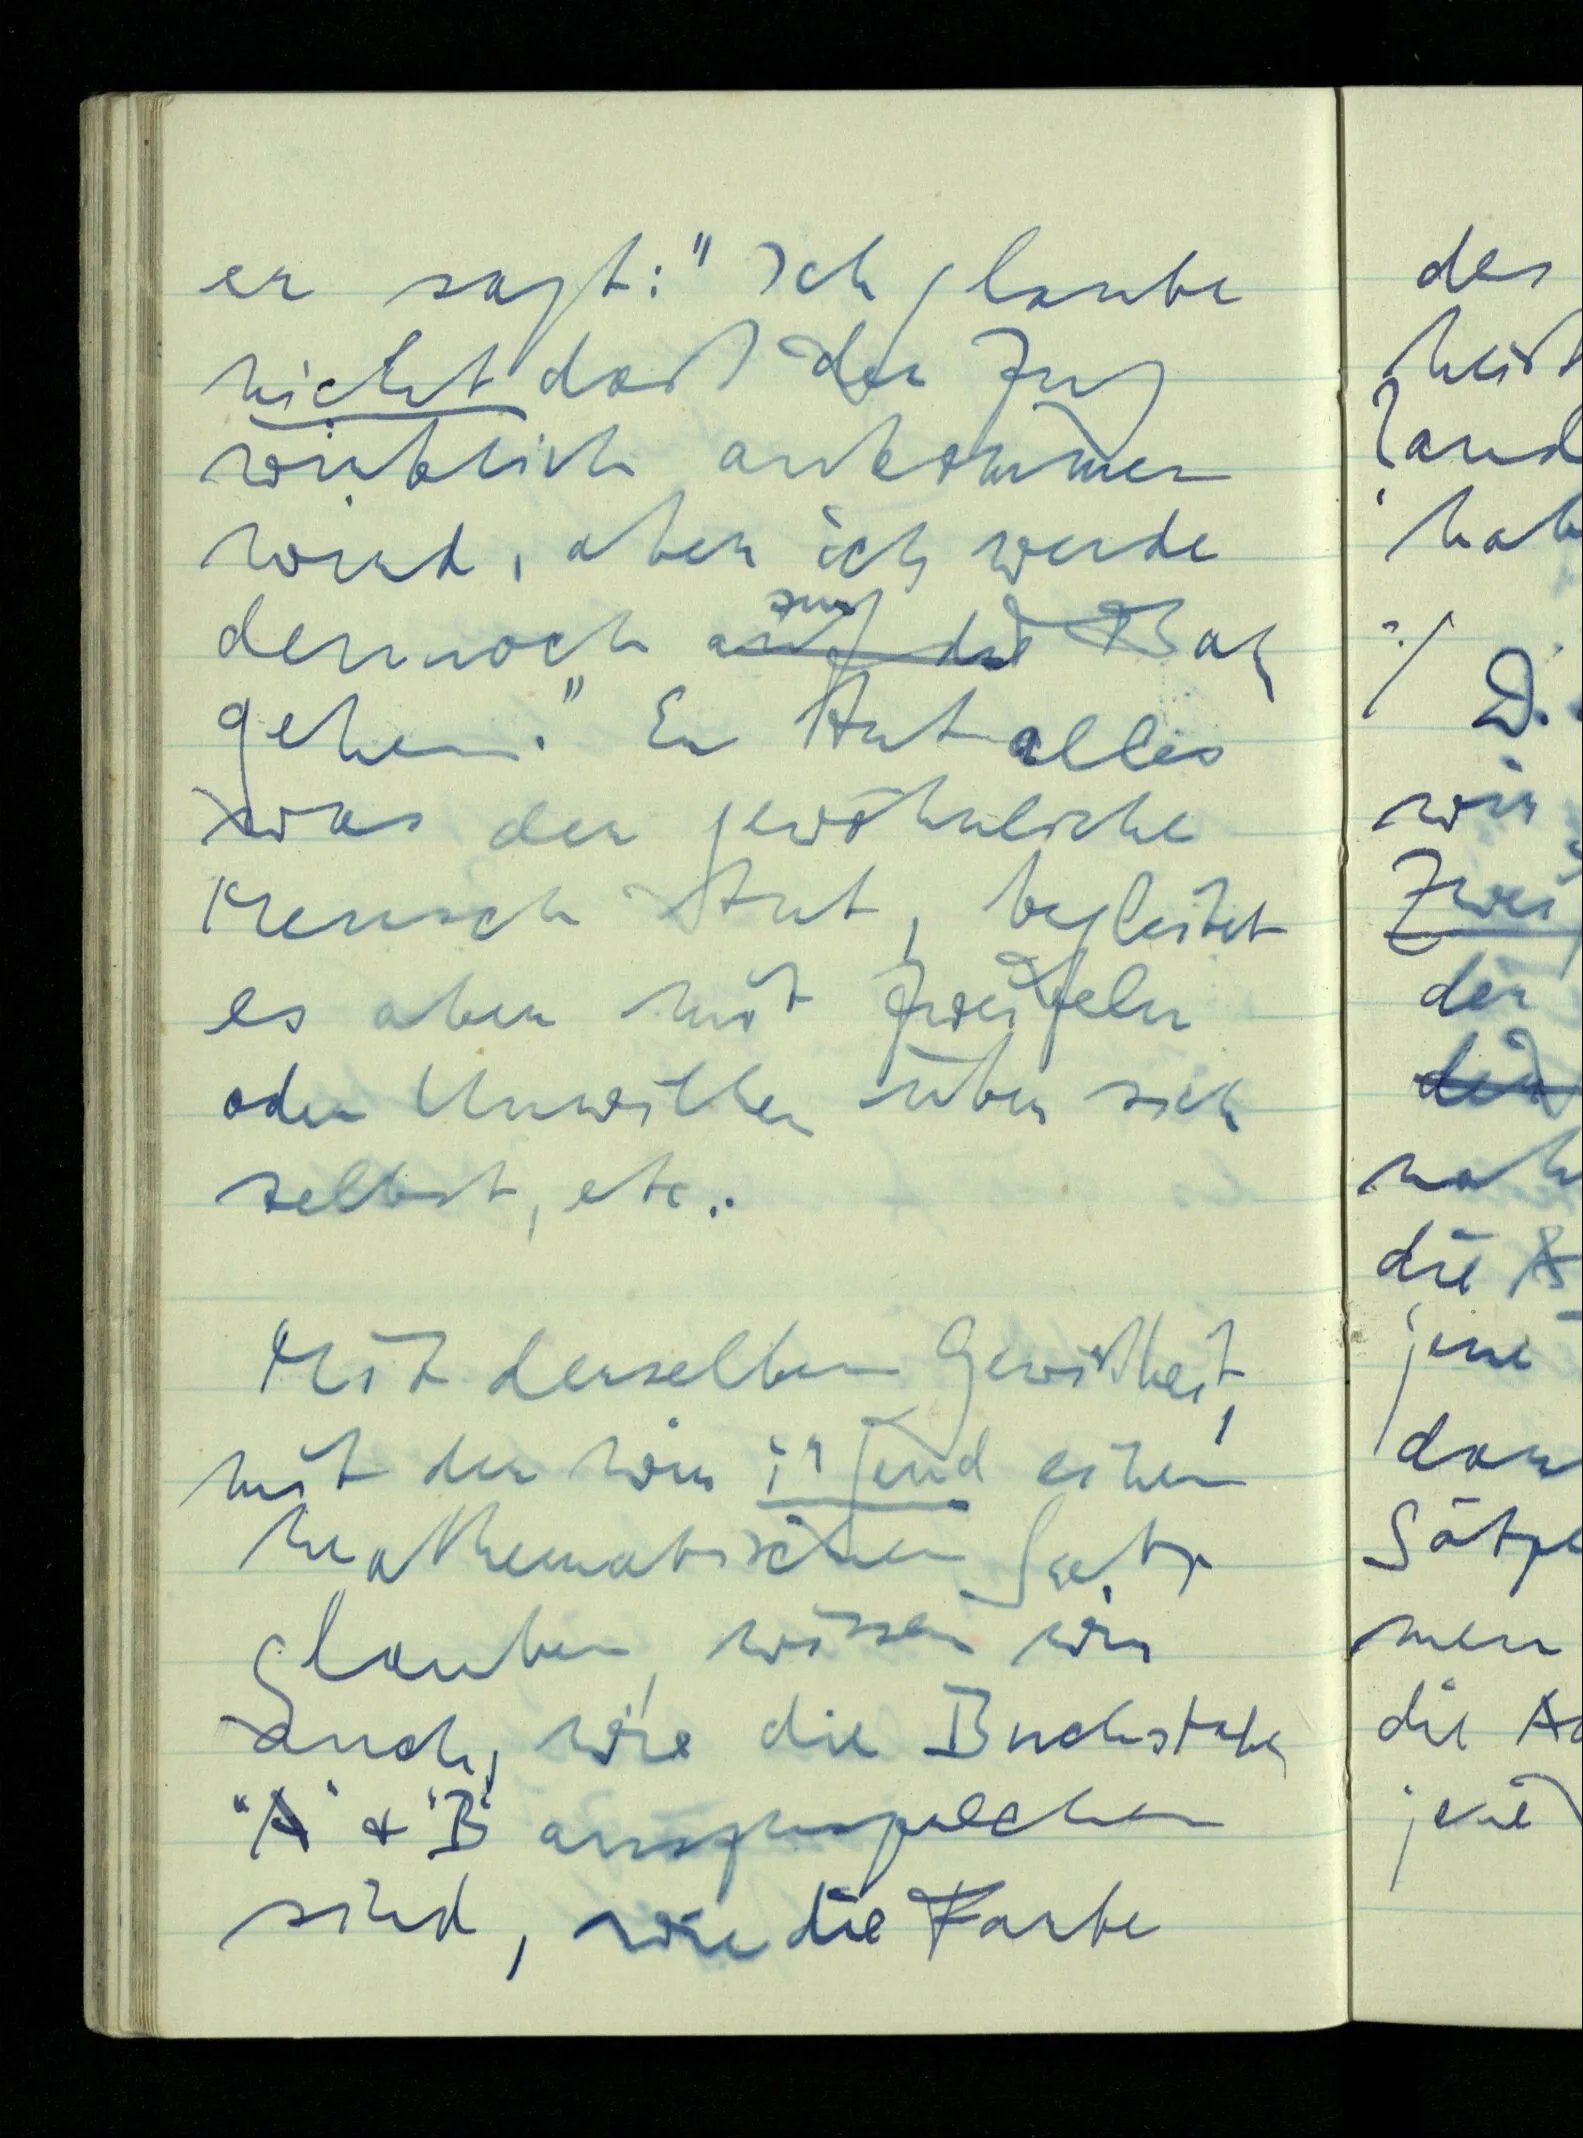 er sagt: "Ich glaube
nicht daß der Zug
wirklich ankommen
wird, aber ich werde
zur
dennoch auf die Bah
gehen." Er thut alles
was der gewöhnliche
Mensch thut, begleitet
es aber mit Zweifeln
oder Unwillen über sich
selbst, etc..
Mit derselben Gewißheit,
mit der wir irgend einen
mathematischen Satz
glauben, wissen wir
auch, wie die Buchstaben
"A" & "B" auszusprechen
sind, wie die Farbe
des
heißt
Hand
hab
⁒ D.
wir
Zweif
der
die
die A
jene
dan
Sätze
men
die
jene